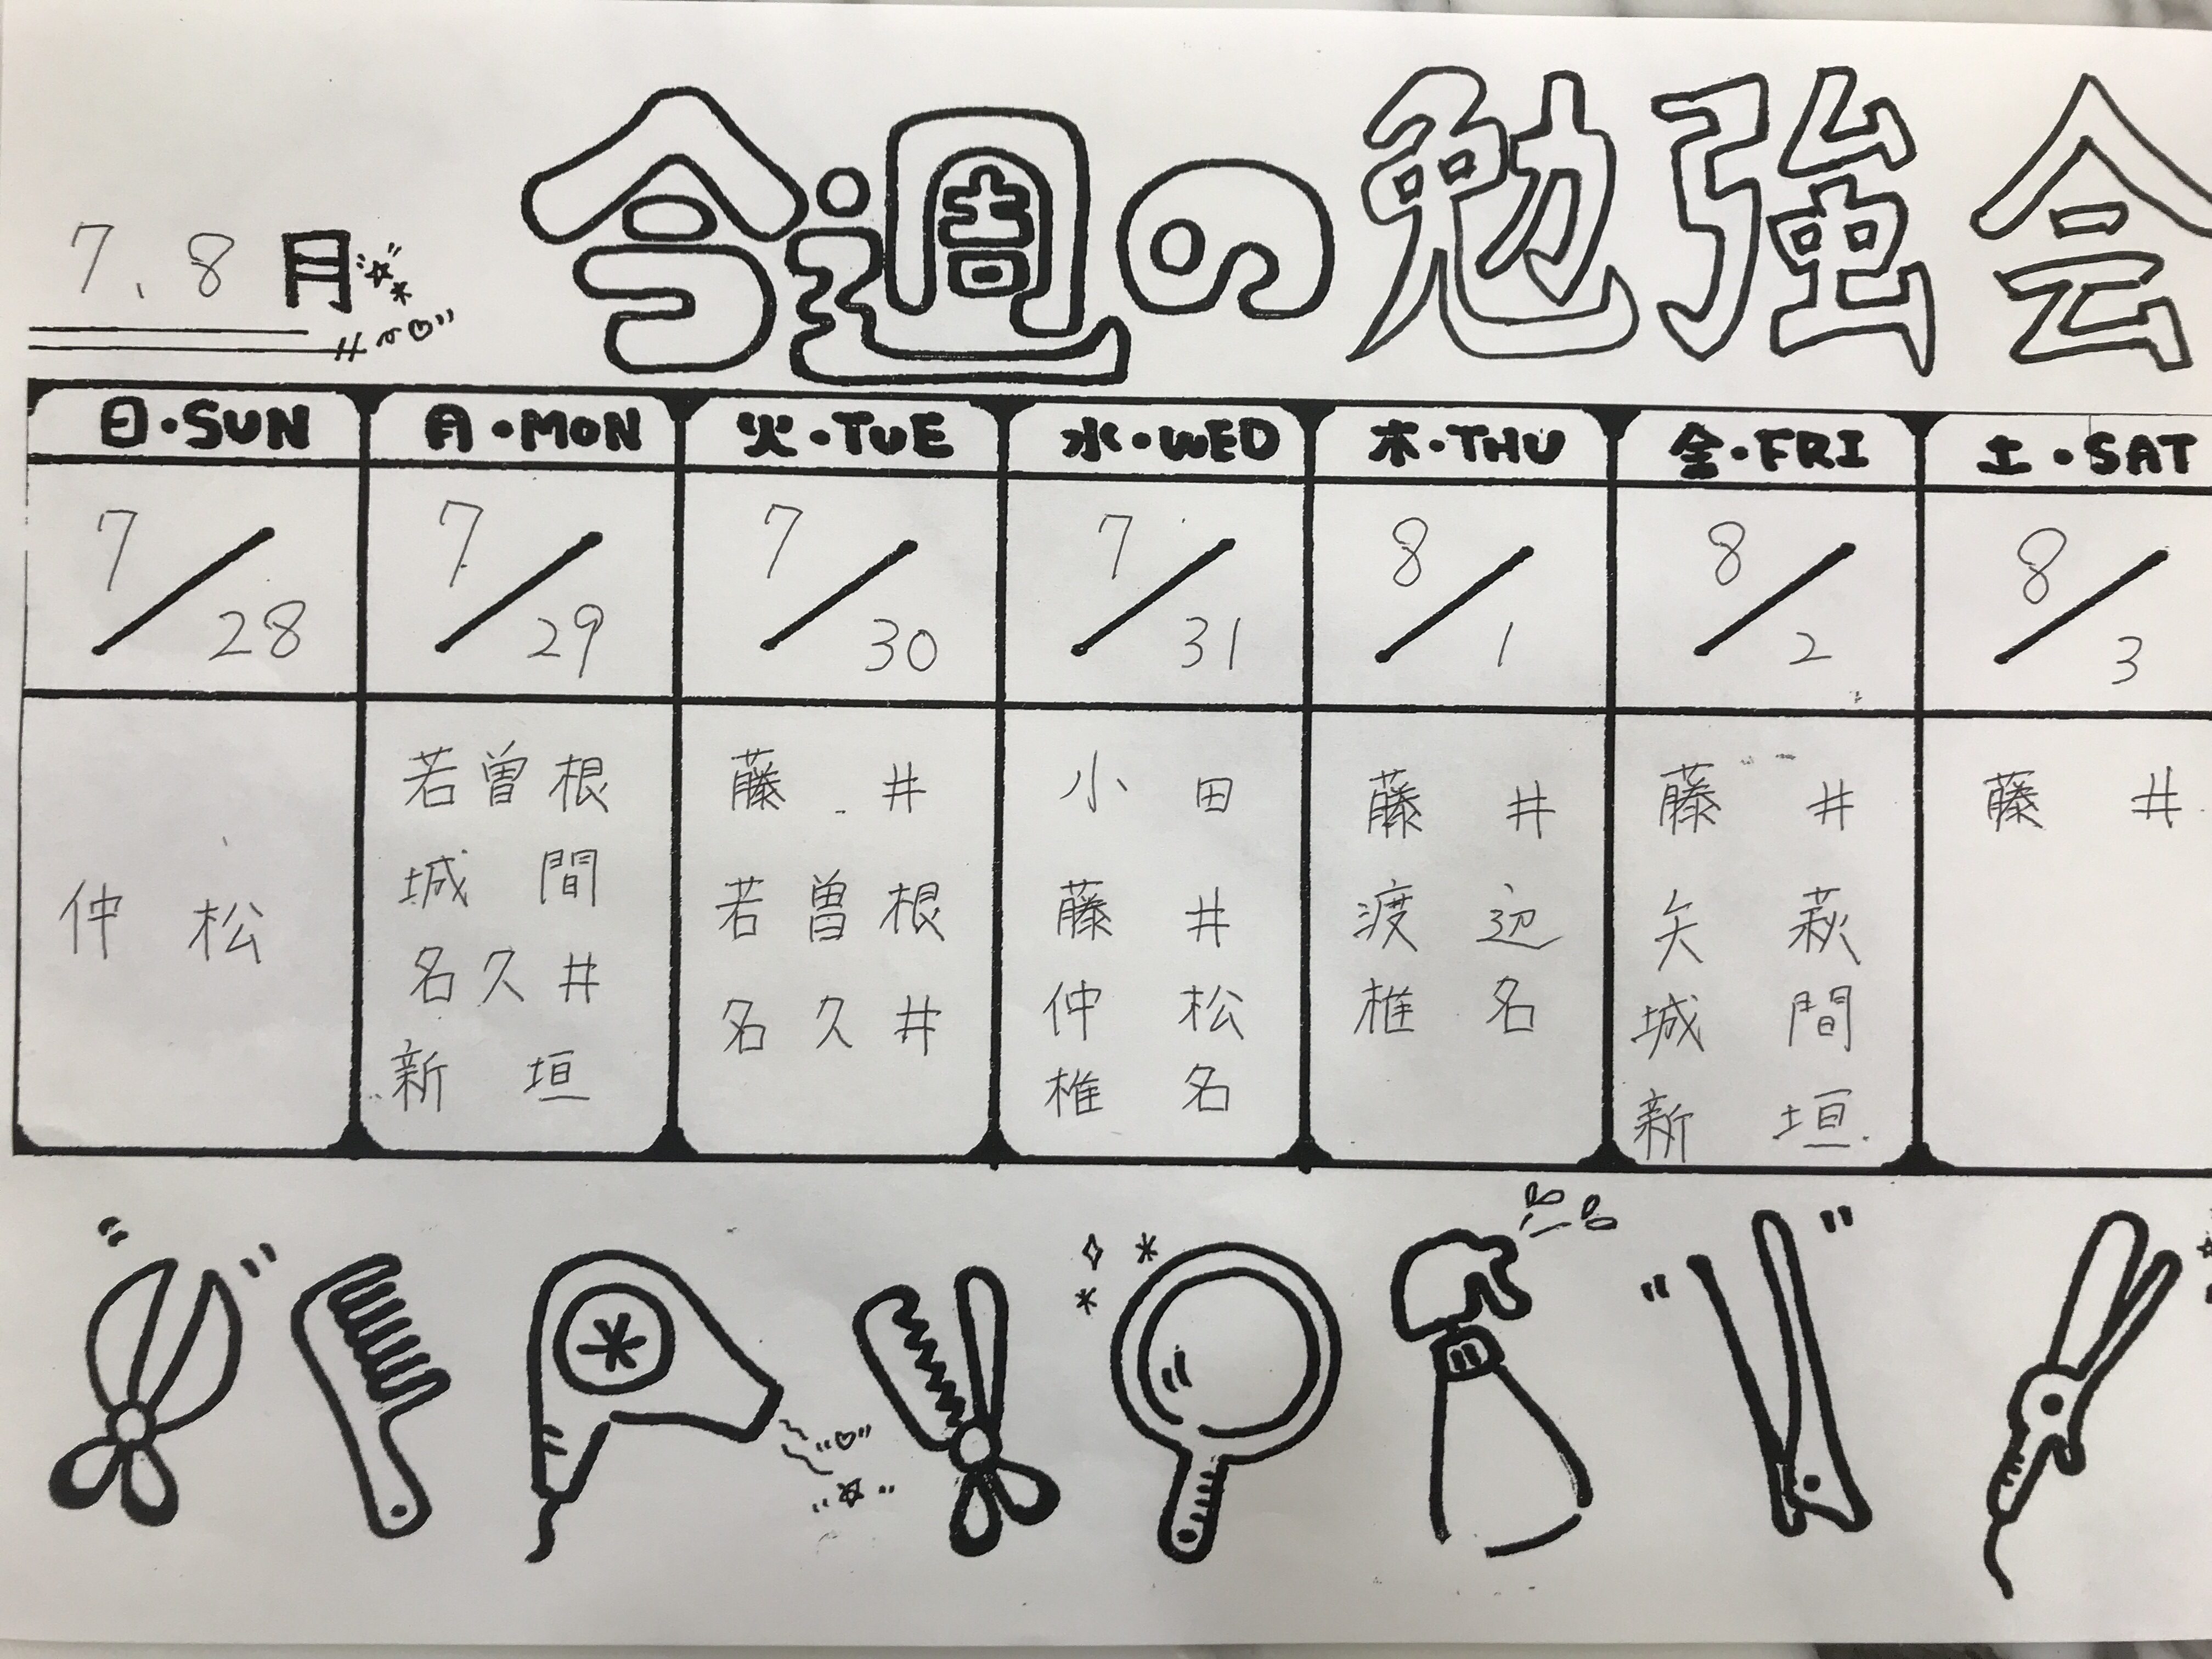 今週の勉強会
7、8月
日・SUN 月・MON 火・TUE 水・WED 木・THU 金・FRI 土・SAT
7/28 7/29 7/30 7/31 8/1 8/2 8/3
仲松
若曽根
城間
名久井
新垣
藤井
若曽根
名久井
小田
藤井
仲松
椎名
藤井
渡辺
椎名
藤井
矢萩
城間
新垣
藤井